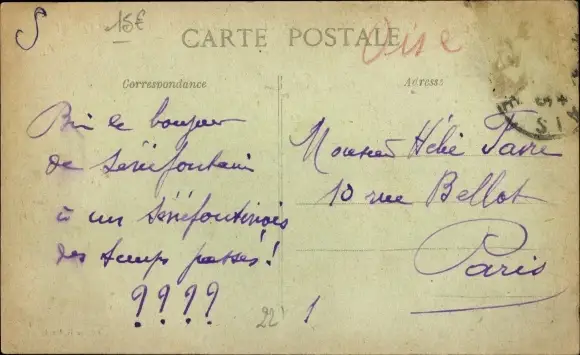 S
15€
CARTE POSTALE
Oise
Correspondance
Adresse
Bien le bonjour
de Sénéfontaine
à un Sénéfontinois
des temps passés!
????
Monsieur Hélie Favre
10 rue Bellot
Paris
22
1